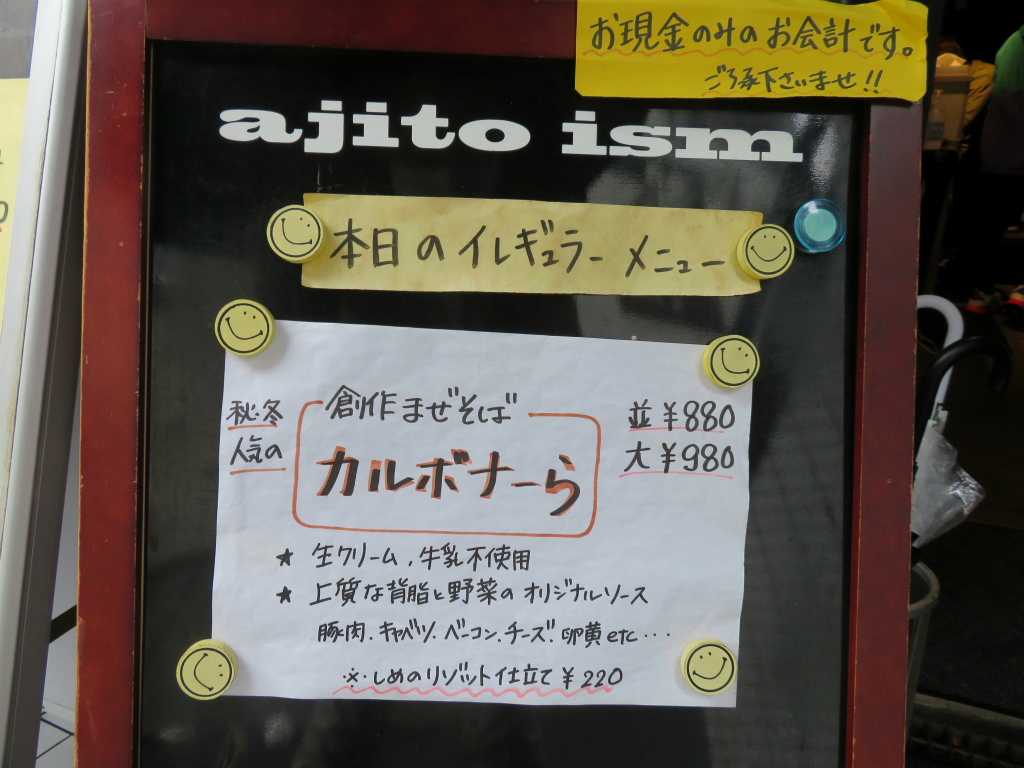 お現金のみのお会計です。
ご了承下さいませ!!
ajito ism
本日のイレギュラーメニュー
秋・冬
人気の
創作まぜそば
カルボナーら
並¥880
大¥980
★ 生クリーム、牛乳不使用
★ 上質な背脂と野菜のオリジナルソース
豚肉、キャベツ、ベーコン、チーズ、卵黄etc・・・
※しめのリゾット仕立て¥220